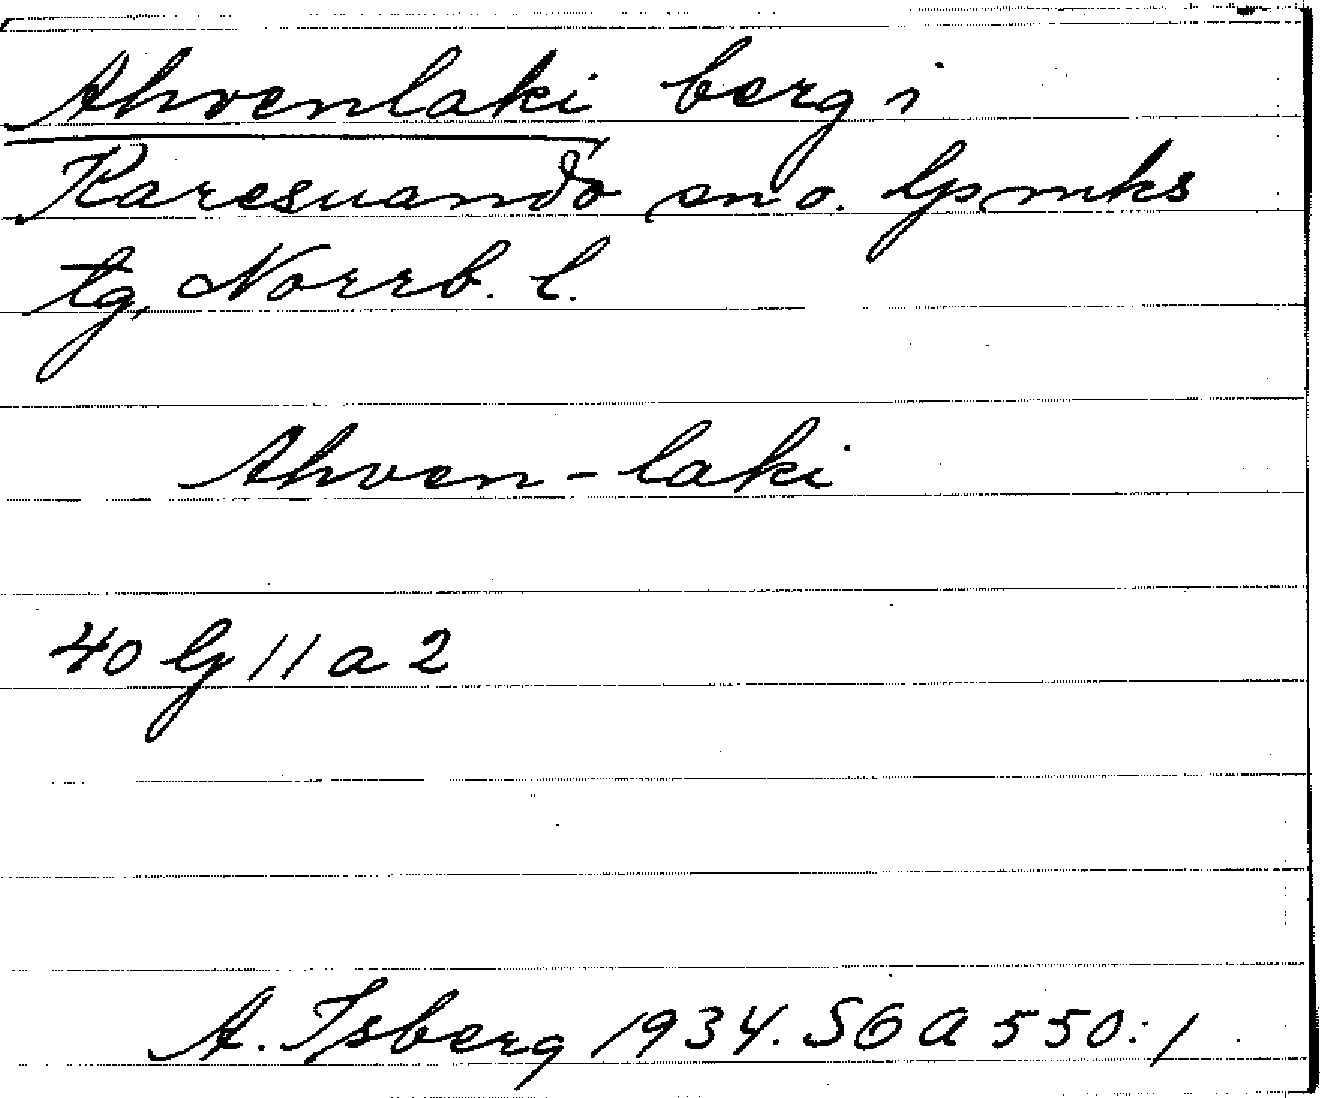 Ahvenlaki berg i
Karesuando sn o. lpmks
tg, Norrb. l.
Ahven-laki
40 lg 11 a 2
A. Isberg 1934. SOA 550:1